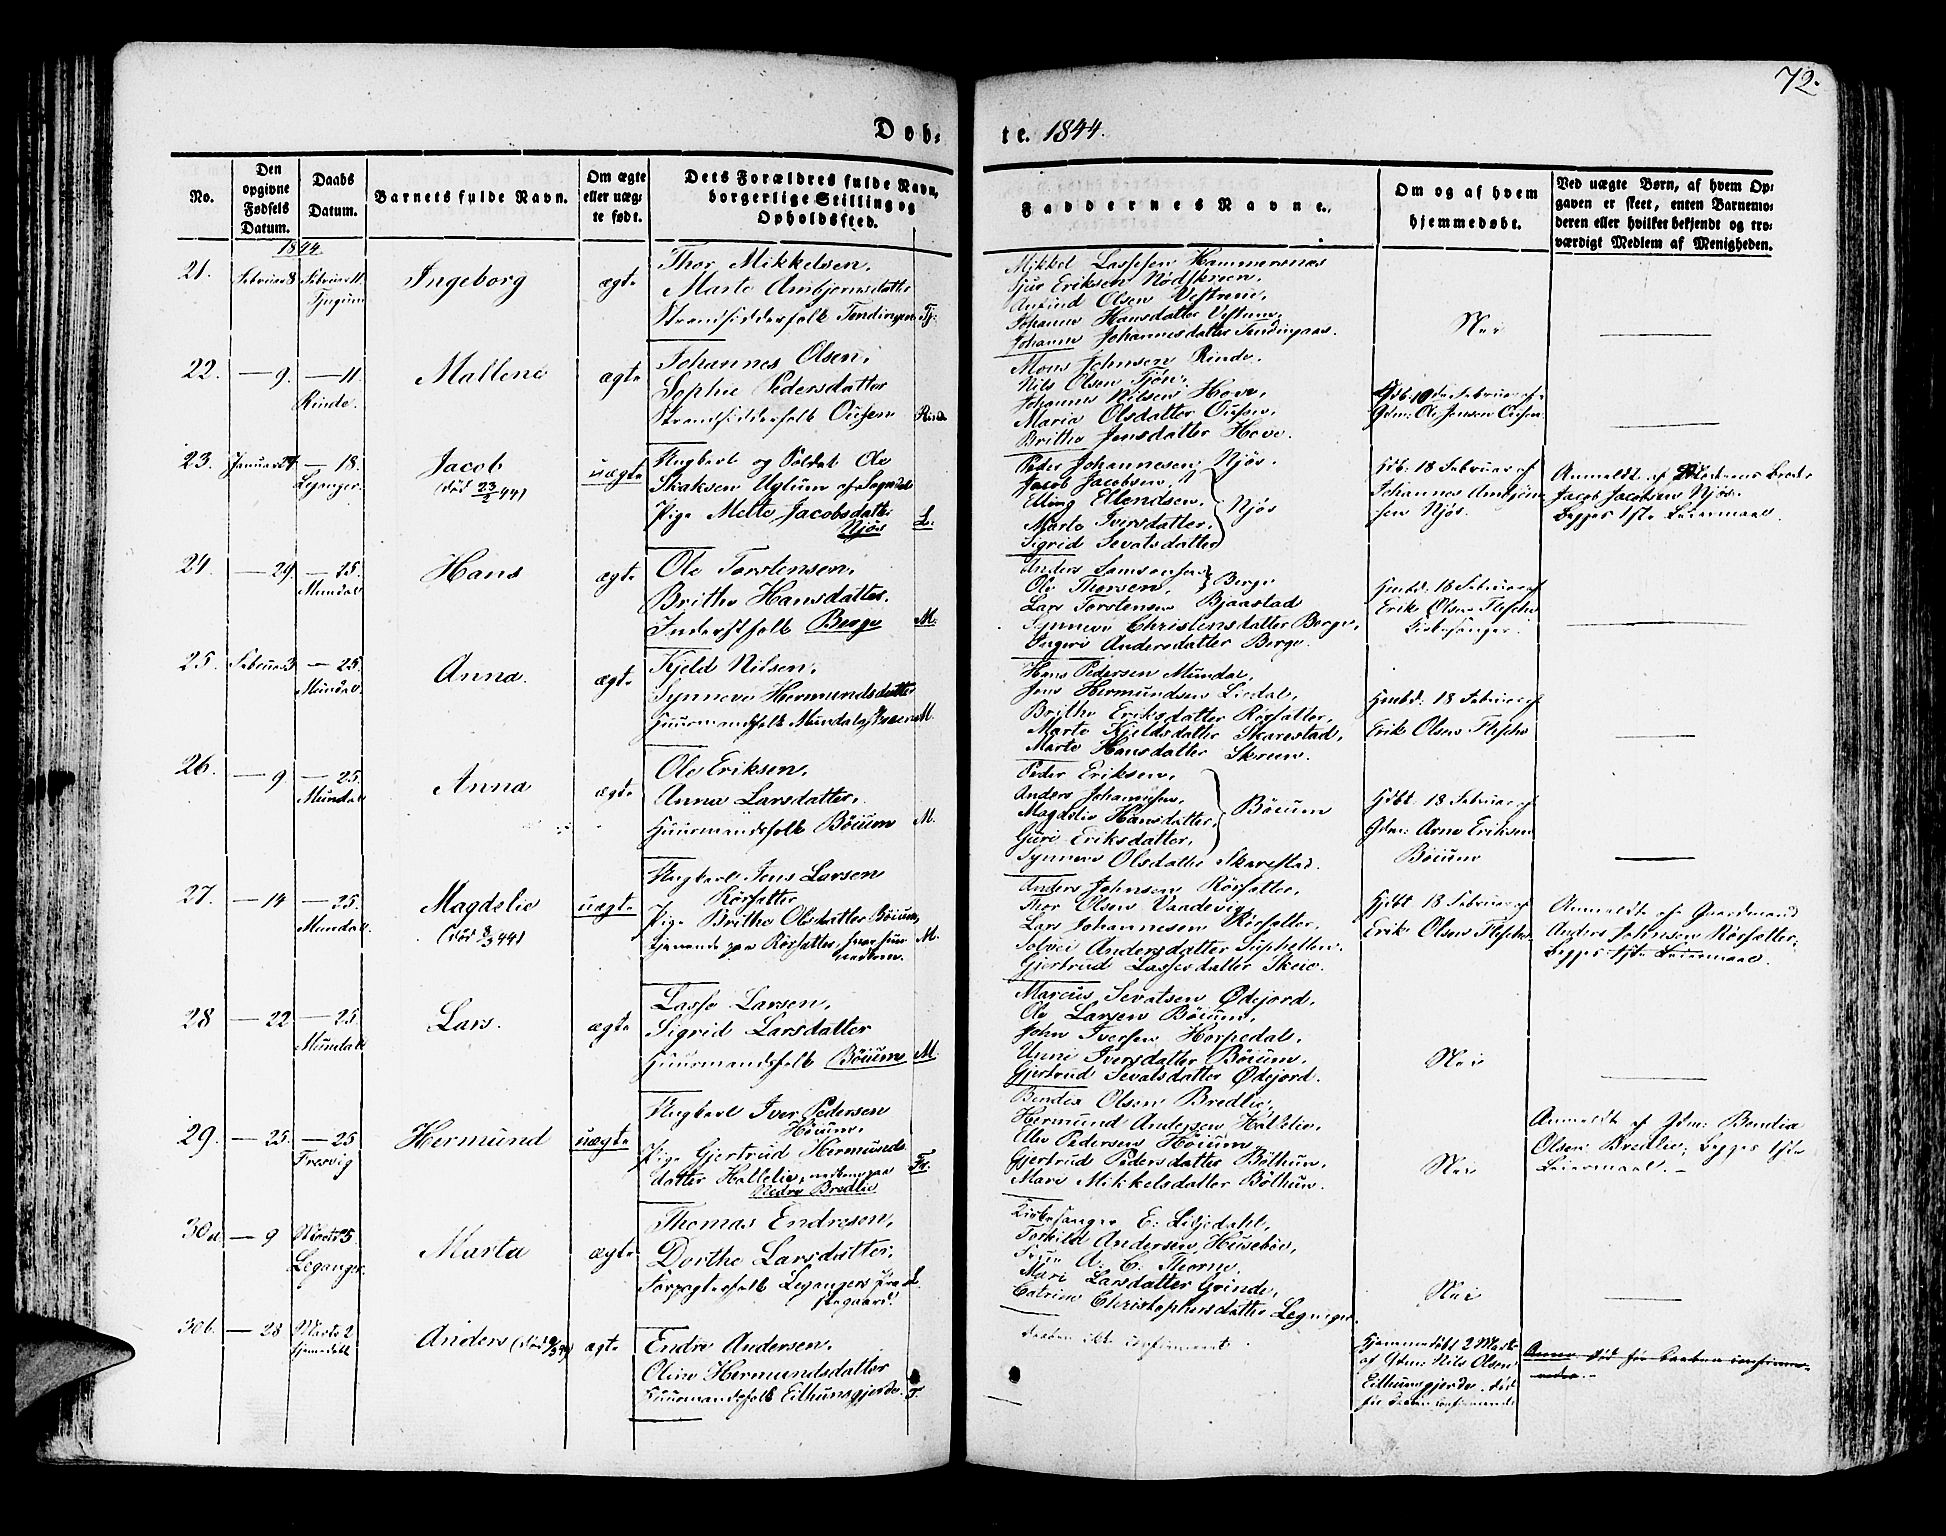 72.
Døb-
te. 1844.
No.
Den opgivne Fødsels Datum.
Daabs Datum.
Barnets fulde Navn.
Om ægte eller uægte født.
Dets Forældres fulde Navn, borgerlige Stilling og Opholdssted.
Faddernes Navne.
Om og af hvem hjemmedøbt.
Ved uægte Børn, af hvem Opgaven er skeet, enten Barnemoderen eller hvilket bekjendt og troværdigt Medlem af Menigheden.
1844.
21. Februar 8 Februar 11. Ingeborg ægte
Thor Mikkelsen,
Marte Ambjørnsdatter
Strandsidderfolk
Mikkel Lassesen Hammersnæs
Sjur Eriksen Nødskreen,
Anfind Olsen Vestrum,
Johanne Hansdatter Vestrum,
Johanne Johannesdatter
Nei
22. — 9. — 11. Rinde. Mallene ægte
Johannes Olsen,
Sophie Pedersdatter
Strandsidderfolk Ousen Rind.
Mons Johnsen Rinde.
Nils Olsen Tjøn,
Johannes Nilsen Hove,
Maria Olsdatter Ousen,
Brithe Jensdatter Hove.
Hdb: 10de Februar af
Gdm: Ole Jensen Ousen
23. Januar 27 — 18. Leganger. Jacob uægte
(død 23/2 44)
Ungkarl og Soldat Ole
Skaksen Uglum af Sogndal
Pige Mette Jacobsdatter
Njøs L:
Peder Johannesen Njøs.
Jacob Jacobsen,
Elling Ellendsen, Njøs
Marte Iversdatter,
Sigrid Sevatsdatter
Hdb: 18 Februar af
Johannes Ambjørn-
sen Njøs.
Anmeldt af Moderens Broder
Jacob Jacobsen Njøs.
Begges 1ste Leiermaal.
24. — 29. — 25. Mundal Hans ægte
Ole Torstensen,
Brithe Hansdatter.
Inderstfolk Berge M.
Anders Samsonsen
Ole Thorsen, Berge
Lars Torstensen Bjaastad
Synneve Christensdatter Berge,
Ingeri Andersdatter Berge.
Hmbd. 18 Februar af
Erik Olsen Flesche
Kirkesanger.
25. Februar 3 — 25. Mundal. Anna. ægte
Kjeld Nilsen,
Synneve Hermundsdatter
Huusmandsfolk M.
Hans Pedersen Mundal,
Jens Hermundsen Liedal,
Brithe Eriksdatter Rørsatter,
Marte Kjeldsdatter Skarestad,
Marte Hansdatter Skreen.
Hmbd. 18 Februar af
Erik Olsen Flesche
26. — 9. — 25. Mundal Anna ægte
Ole Eriksen,
Anna Larsdatter,
Huusmandsfolk Bøium M.
Peder Eriksen,
Anders Johannesen,
Magdelie Hansdatter, Bøium
Guri Eriksdatter,
Synneve Olsdatter Skarestad.
Hdbt: 18 Februar af
Gdm: Arne Eriksen
Bøium
27. — 14 — 25. Mundal. Magdelie uægte
(død 8/3 44)
Ungkarl Jens Larsen
Rørsatter
Pige Brithe Olsdatter Bøium,
tjenende paa Rørsatter, M.
Anders Johnsen Rørsatter,
Thor Olsen
Lars Johannesen Rørsatter,
Solvei Andersdatter Suphellen.
Gjertrud Lassesdatter Skeie.
Hdbt 18 Februar af
Erik Olsen Flesche.
Anmeldt af Gaardmand
Anders Johnsen Rørsatter;
Begges 1ste Leiermaal.
28 — 22 — 25. Mundal Lars. ægte
Lasse Larsen,
Sigrid Larsdatter
Huusmandsfolk Bøium M.
Marcus Sevatsen Ødejord,
Ole Larsen Bøium,
John Iversen Horpedal,
Unni Iversdatter Bøium,
Gjertrud Sevatsdatter Ødejord.
Nei
29. — 25. — 25 Fresvig Hermund uægte
Ungkarl Iver Pedersen
Høium,
Pige Gjertrud Hermunds-
datter Hallelie,
Nedre Bredlie Fr.
Bendix Olsen Bredlie,
Hermund Andersen Hallelie,
Elle Pedersen Høium,
Gjertrud Pedersdatter Bøthun,
Mari Mikkelsdatter Bøthun.
Nei
Anmeldt af Gdm: Bendix
Olsen Bredlie; Begges 1ste
Leiermaal. —
30a — 9 Marts Leganger. Marta ægte
Thomas Endresen,
Dorthe Larsdatter,
Forpagterfolk Legangers Præ-
stegaard. L.
Kirkesanger E. Liljedahl,
Torkild Andersen Husebøe,
Frue A. C. Thorne.
Mari Larsdatter Grinde,
Catrine Christophersdatter
Nei
30b. — 28 Marts 2 Hjemmedøbt Anders ægte
Endre Andersen,
Oline Hermundsdatter
Huusmandsfolk Eithunsgjerde. T.
Daaben ikke confirmeret.
Hjemmedøbt 2 Marts
af Gdm: Nils Olsen
Eithunsgjerde. død
før Daaben confirmeredes
Anm: død før Daaben confirme-
redes. —